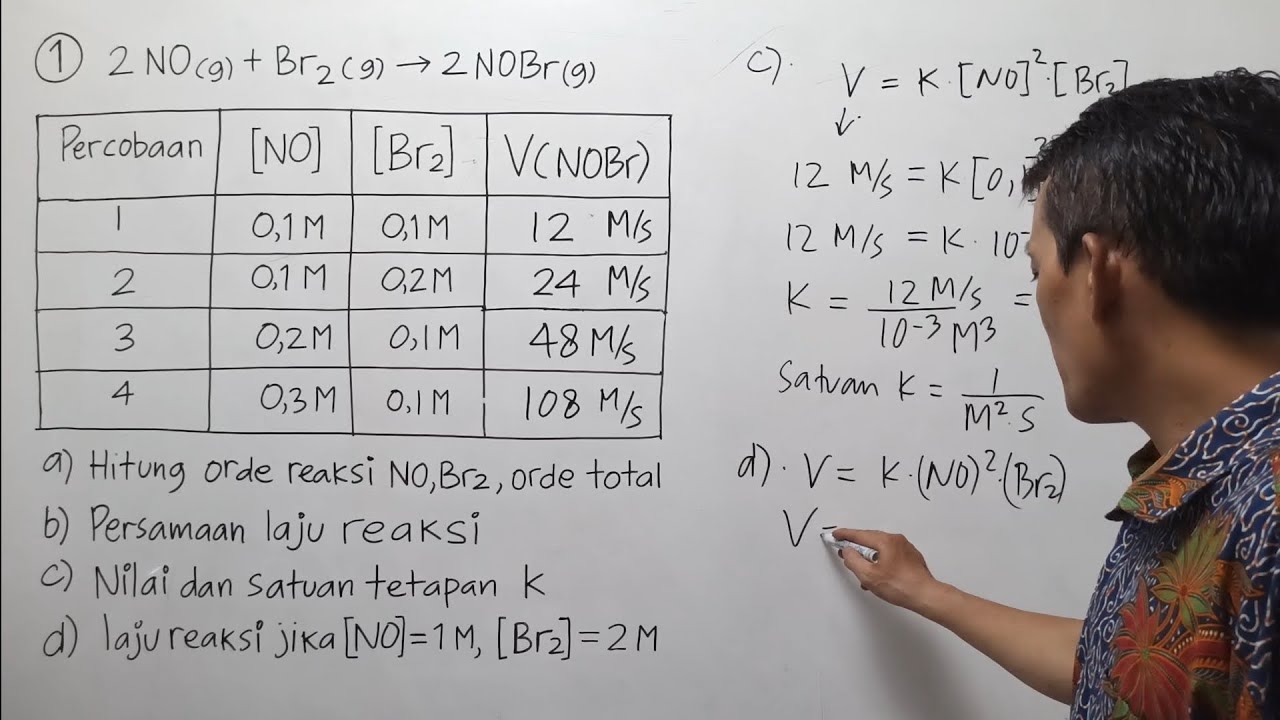 ① 2 NO(g) + Br₂(g) → 2 NOBr(g)
Percobaan [NO] [Br₂] V(NOBr)
1 0,1 M 0,1 M 12 M/s
2 0,1 M 0,2 M 24 M/s
3 0,2 M 0,1 M 48 M/s
4 0,3 M 0,1 M 108 M/s
a) Hitung orde reaksi NO, Br₂, orde total
b) Persamaan laju reaksi
c) Nilai dan satuan tetapan k
d) laju reaksi jika [NO] = 1 M, [Br₂] = 2 M
c). V = K·[NO]²·[Br₂]
↓
12 M/s = K [0,
12 M/s = K · 10⁻
K = 12 M/s / 10⁻³ M³ =
Satuan K = 1 / M²·s
d). V = K·(NO)²·(Br₂)
V =